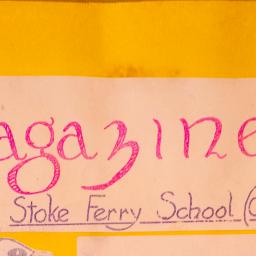 agazine
Stoke Ferry School (